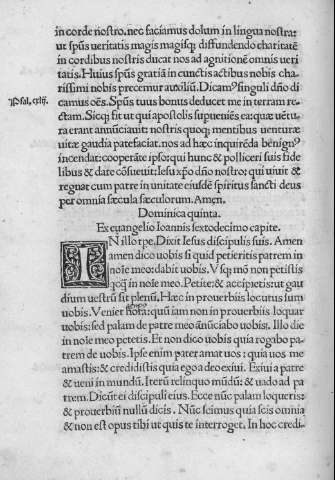 in corde nostro. nec faciamus dolum in lingua nostra:
ut spūs veritatis magis magisq; diffundendo charitatē
in cordibus nostris ducat nos ad agnitionē omnis veri
tatis. Huius spūs gratiā in cunctis actibus nobis cha-
rissimi nobis precemur auxiliū. Dicamꝰ singuli dño di
Psal. cxlij.
camus oēs. Spūs tuus bonus deducet me in terram re-
ctam. Sicq; fit ut qui apostolis supueniēs ea: quæ vētu
ra erant annūciavit: nostris quoq; mentibus venturæ
vitæ gaudia patefaciat. nos ad hæc inquirēda benignꝰ
incendat: cooperāte ipso: qui hunc & polliceri suis fide
libus & dare cōsuevit: Iesu xp̄o dño nostro: qui vivit &
regnat cum patre in unitate eiusdē spiritus sancti deus
per omnia sæcula sæculorum. Amen.
Dominica quinta.
Ex euangelio Ioannis sextodecimo capite.
IN illo tpe. Dixit Iesus discipulis suis. Amen
amen dico vobis si quid petieritis patrem in
noīe meo: dabit vobis. Vsq; mō non petistis
qcq̄ in noīe meo. Petite: & accipietis: ut gau
dium vestrū sit plenū. Hæc in proverbiis locutus sum
vobis. Veniet hora: quū iam non in proverbiis loquar
vobis: sed palam de patre meo ānūciabo vobis. Illo die
in noīe meo petetis. Et non dico vobis quia rogabo pa-
trem de vobis. Ipse enim pater amat vos: quia vos me
amastis: & credidistis quia ego a deo exivi. Exivi a patre
& veni in mundū. Iterū relinquo mūdū: & vado ad pa
trem. Dicūt ei discipuli eius. Ecce nūc palam loqueris:
& proverbiū nullū dicis. Nūc scimus quia scis omnia
& non est opus tibi ut quis te interroget. In hoc credi-